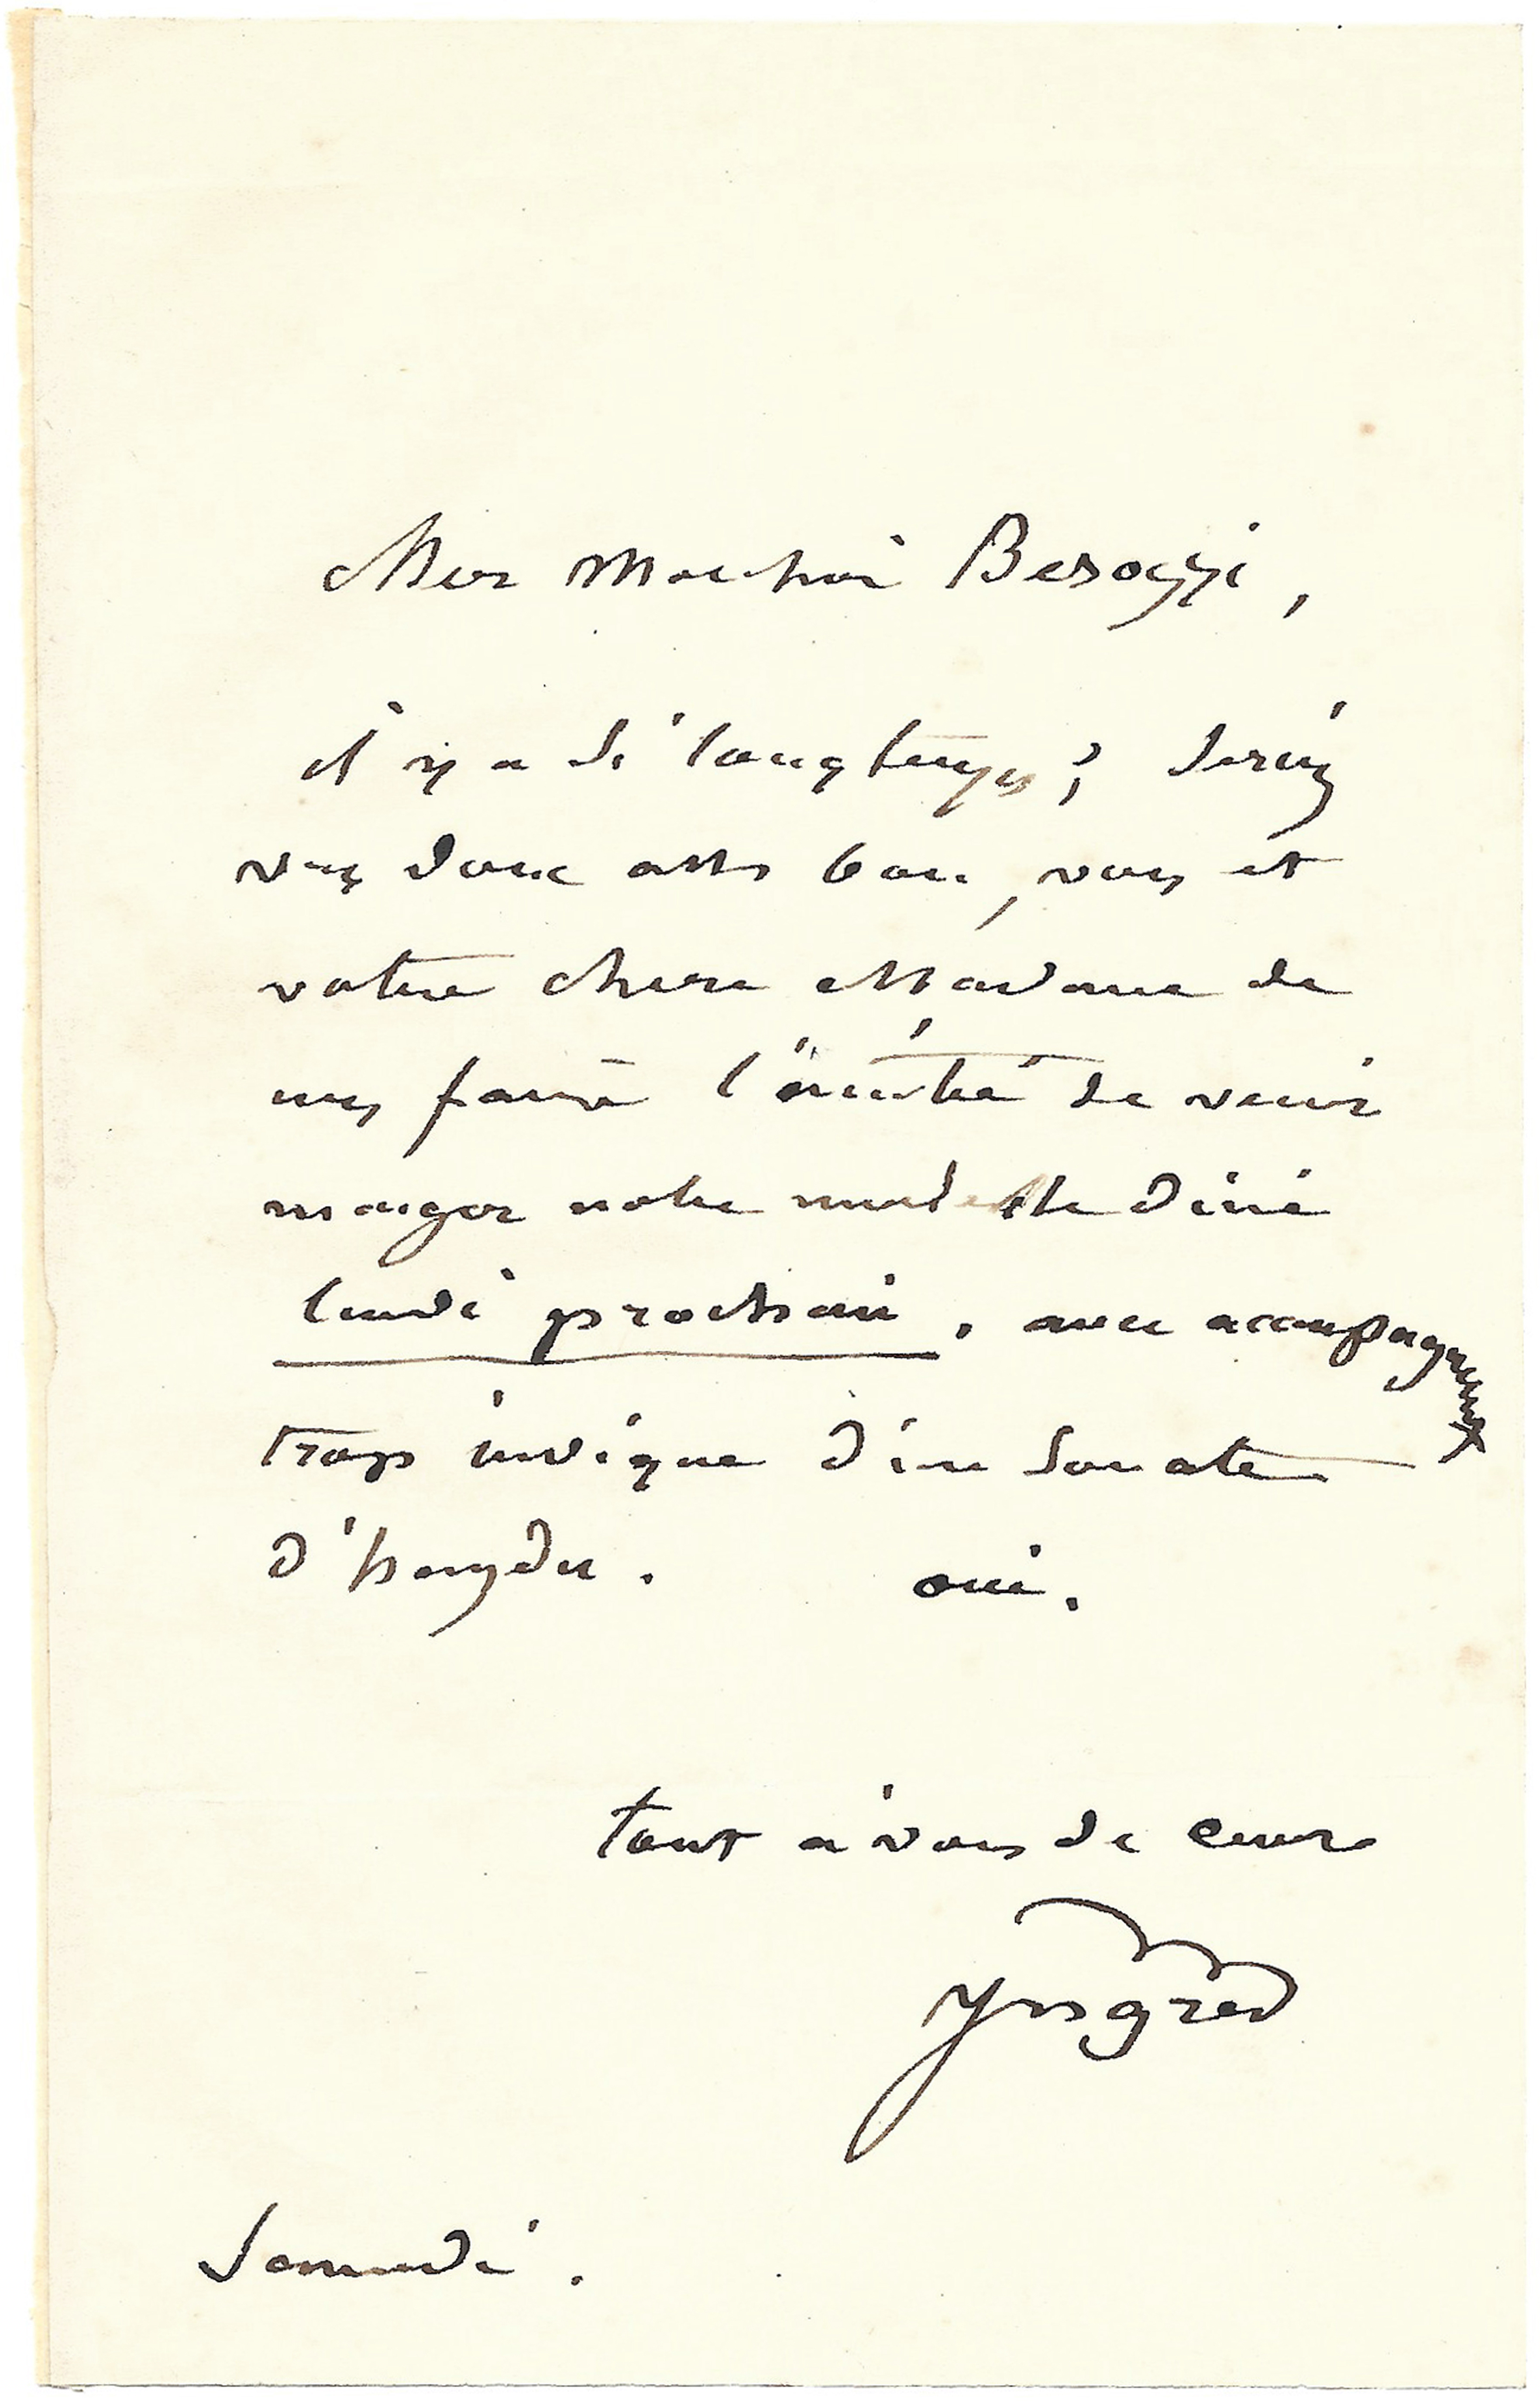 cher Monsieur Besozzi,
il y a si longtemps; seriez
vous donc assez bon, vous et
votre chere Madame de
nous faire l'amitié de venir
manger notre modeste diné
lundi prochain, avec accompagnement
trop indigne d'une Sonate
d'hayden. oui.
tout a vous de cœur
Yngres
Samedi.